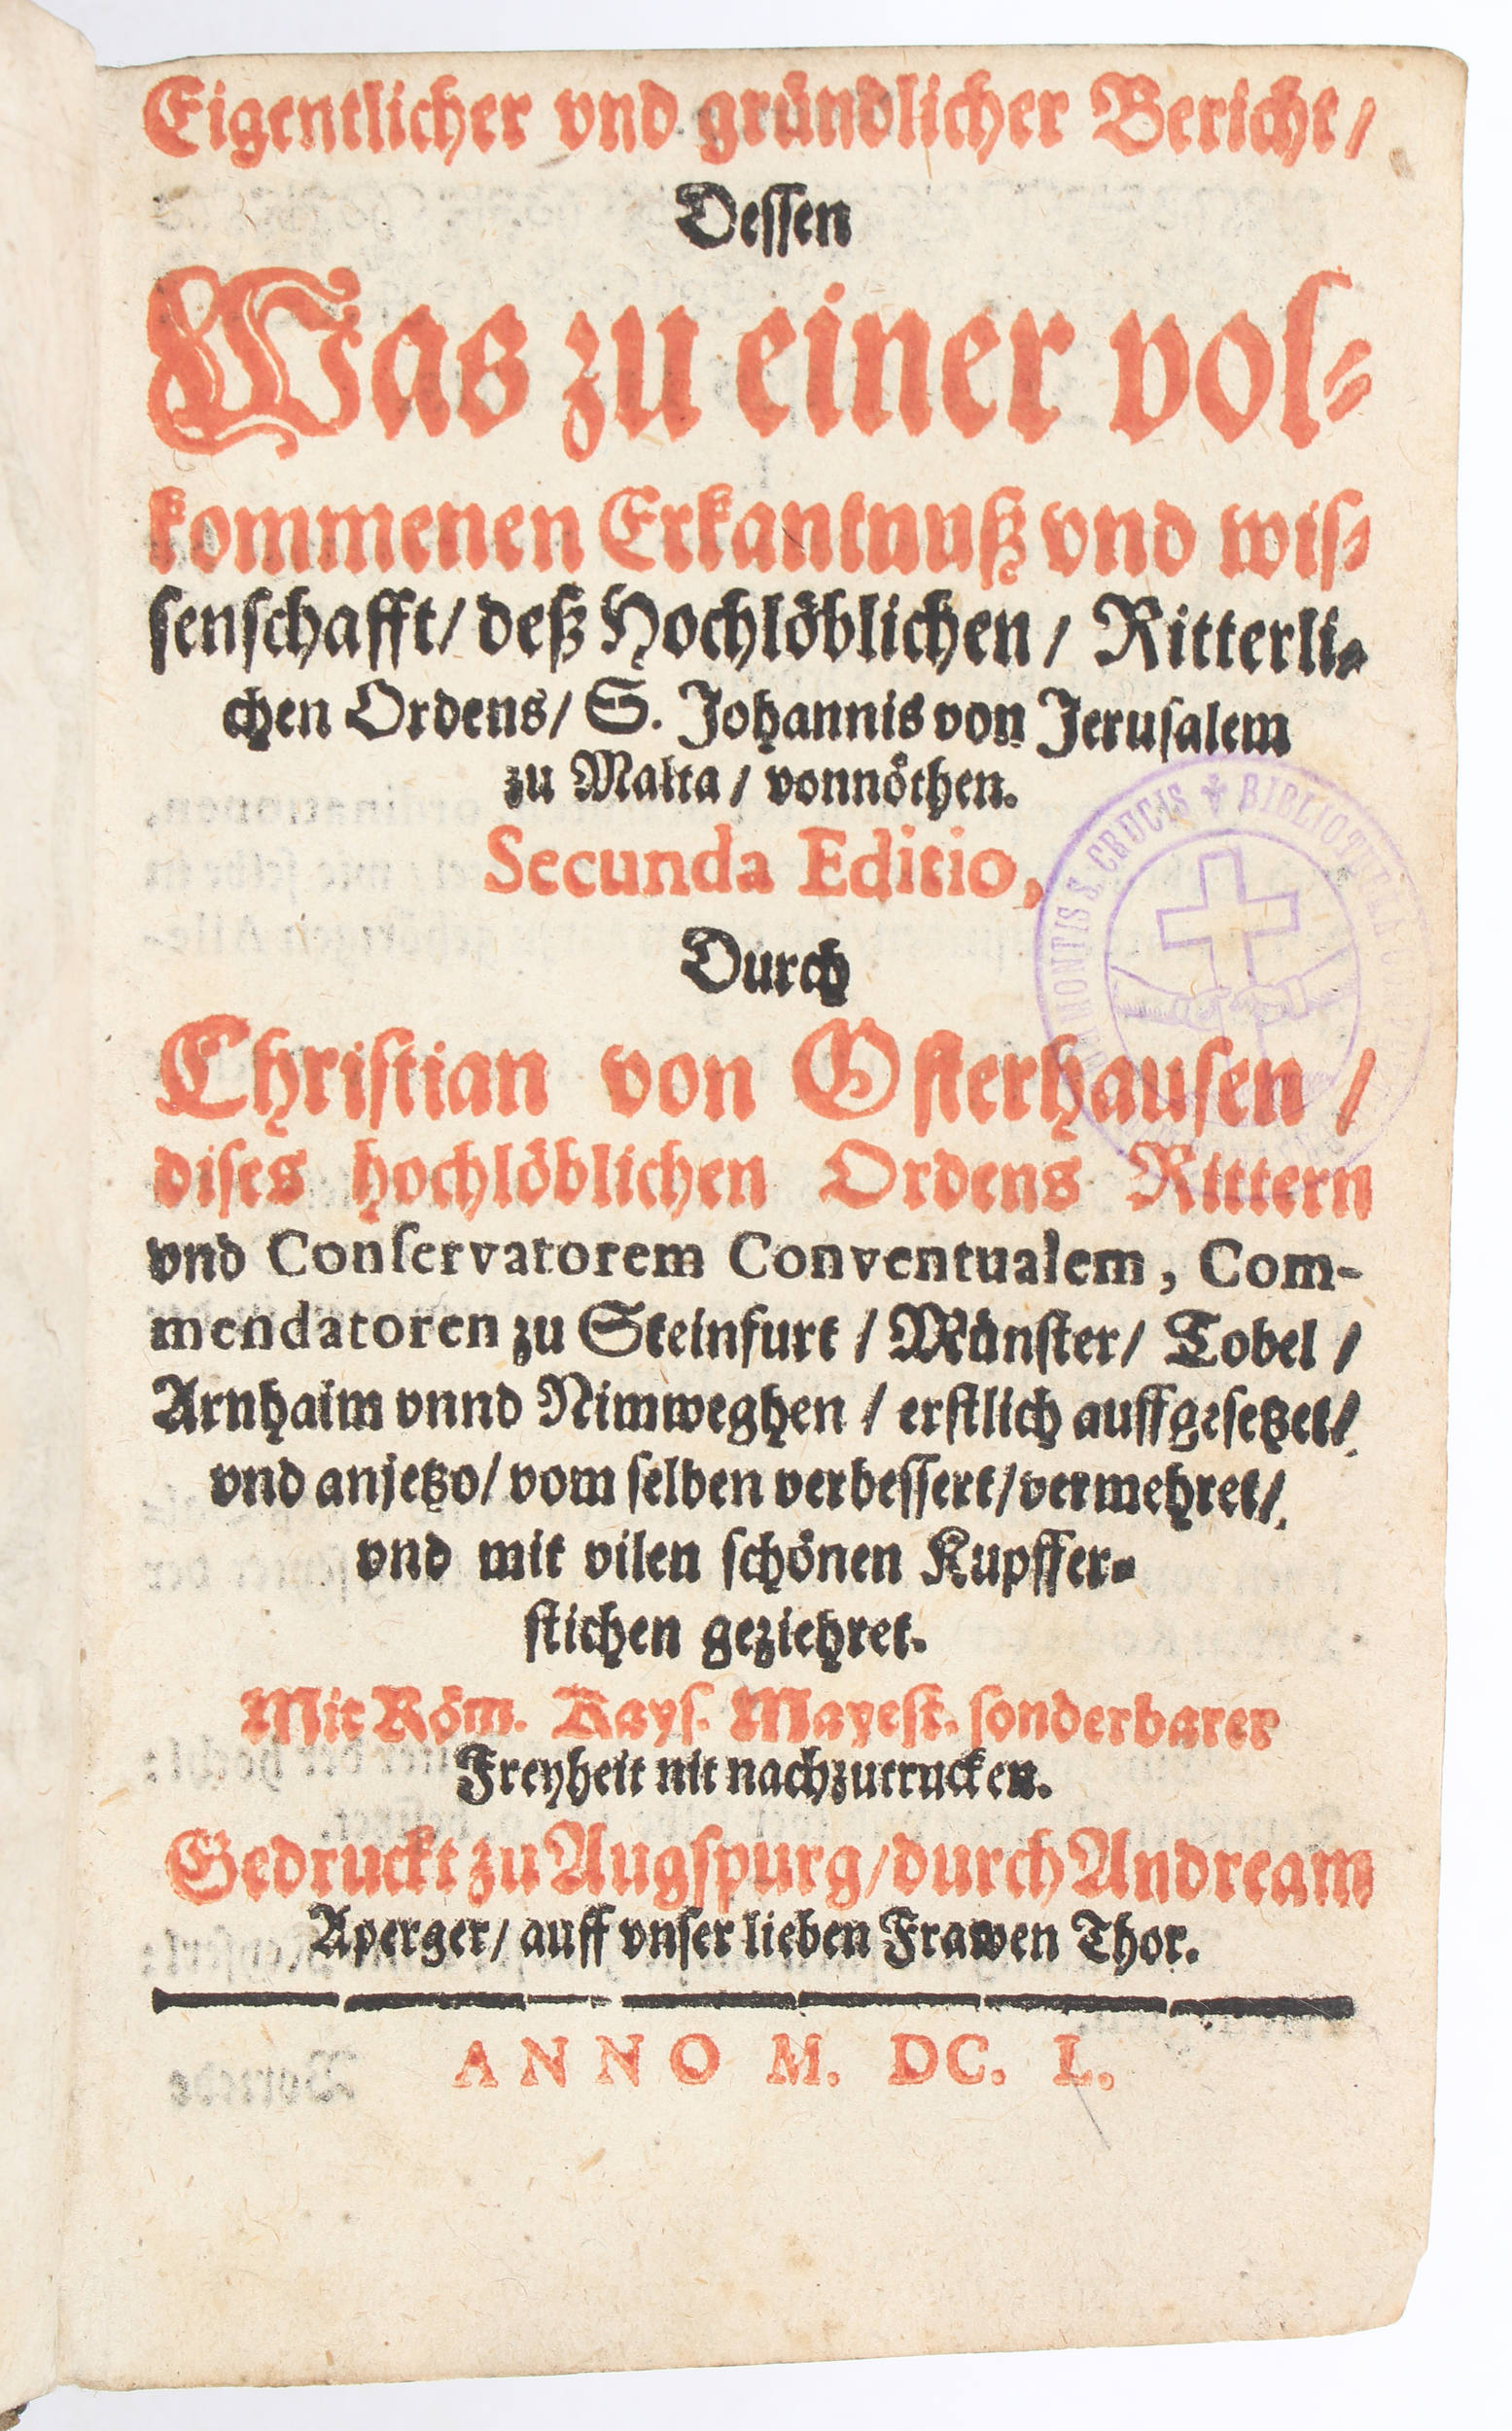 Eigentlicher vnd gründlicher Bericht/
Dessen
Was zu einer vol-
kommenen Erkantnuß vnd wis-
senschafft/ deß Hochlöblichen/ Ritterli-
chen Ordens/ S. Johannis von Jerusalem
zu Malta/ vonnöthen.
Secunda Editio,
Durch
Christian von Osterhausen/
dises hochlöblichen Ordens Rittern
vnd Conservatorem Conventualem, Com-
mendatoren zu Steinfurt/ Münster/ Tobel/
Arnhaim vnnd Nimweghen/ erstlich auffgesetzet/
vnd anjetzo/ vom selben verbessert/ vermehret/
vnd mit vilen schönen Kupffer-
stichen geziehret.
Mit Röm. Kays. Mayest. sonderbarer
Freyheit nit nachzutrucken.
Gedruckt zu Augspurg/ durch Andream
Aperger/ auff vnser lieben Frawen Thor.
ANNO M. DC. L.
MONTIS S. CRUCIS BIBLIOTHEK